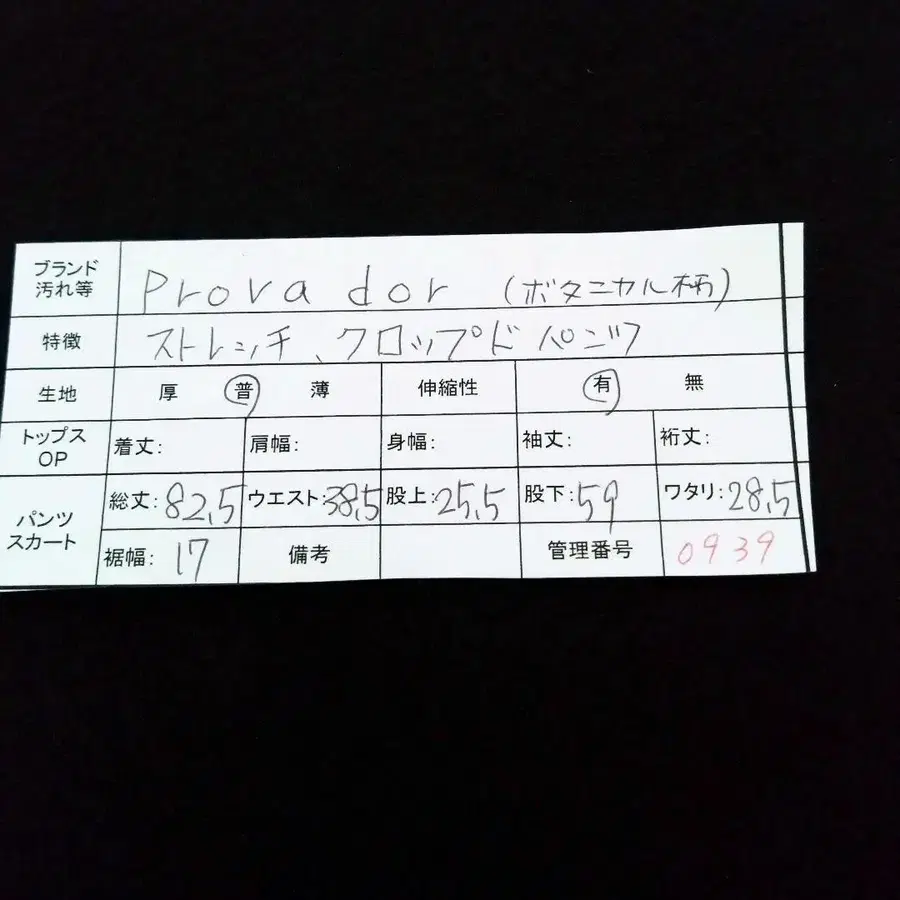 ブランド
汚れ等 Provador (ボタニカル柄)
特徴 ストレッチ、クロップドパンツ
生地 厚 普 薄 伸縮性 有 無
トップス
OP 着丈: 肩幅: 身幅: 袖丈: 裄丈:
パンツ
スカート 総丈:82,5 ウエスト:38,5 股上:25,5 股下:59 ワタリ:28,5
裾幅: 17 備考 管理番号 0939